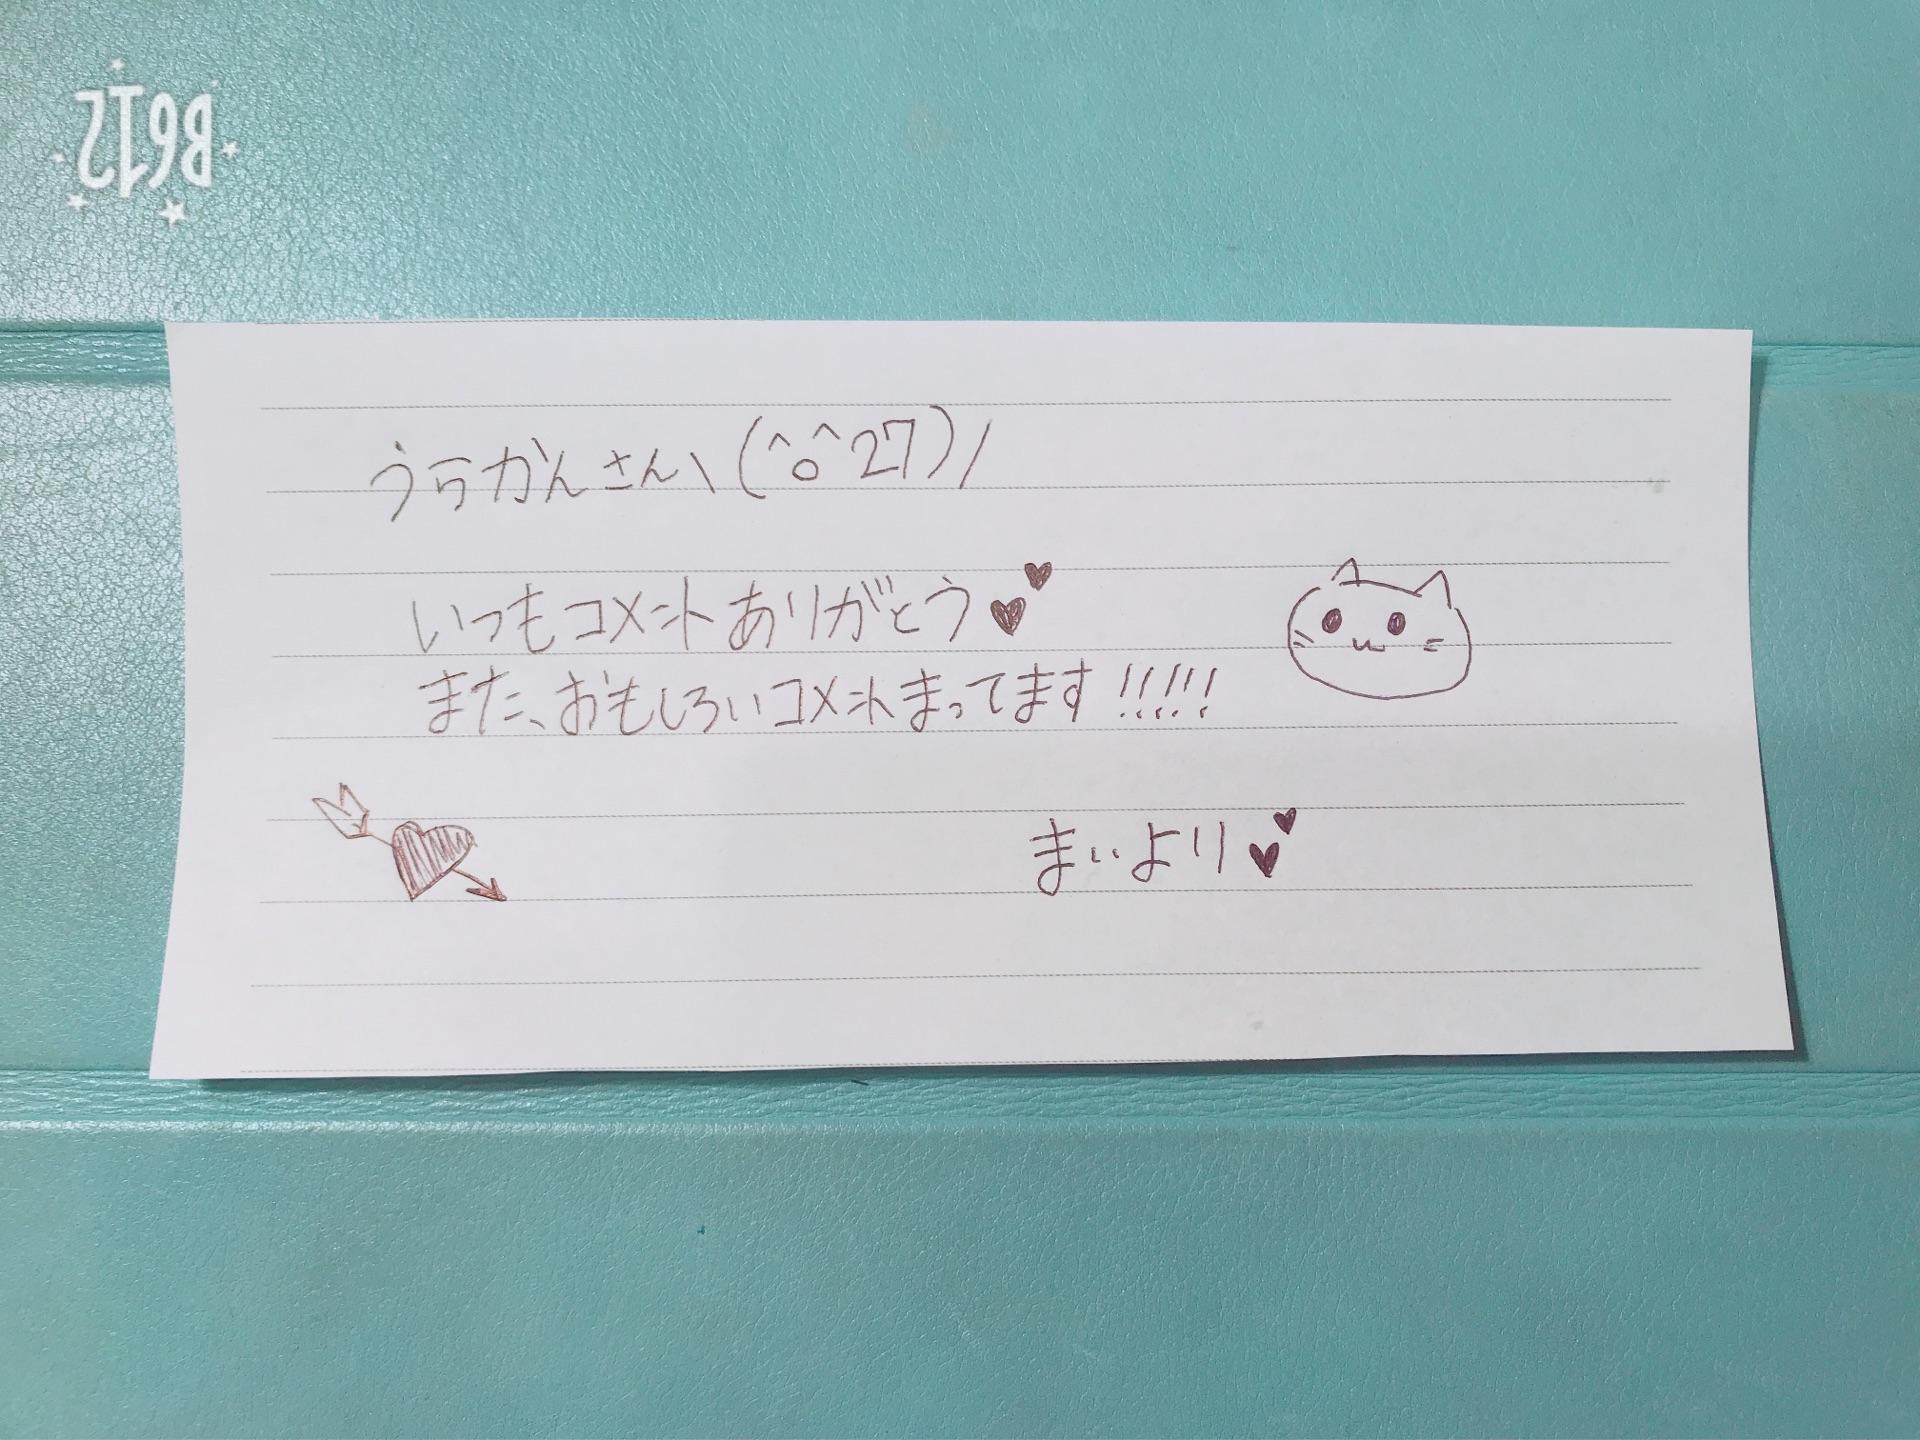 B612
うらかんさん\(^o^27)/
いつもコメントありがとう♥♥
また、おもしろいコメントまってます!!!!!
まぃより♥♥